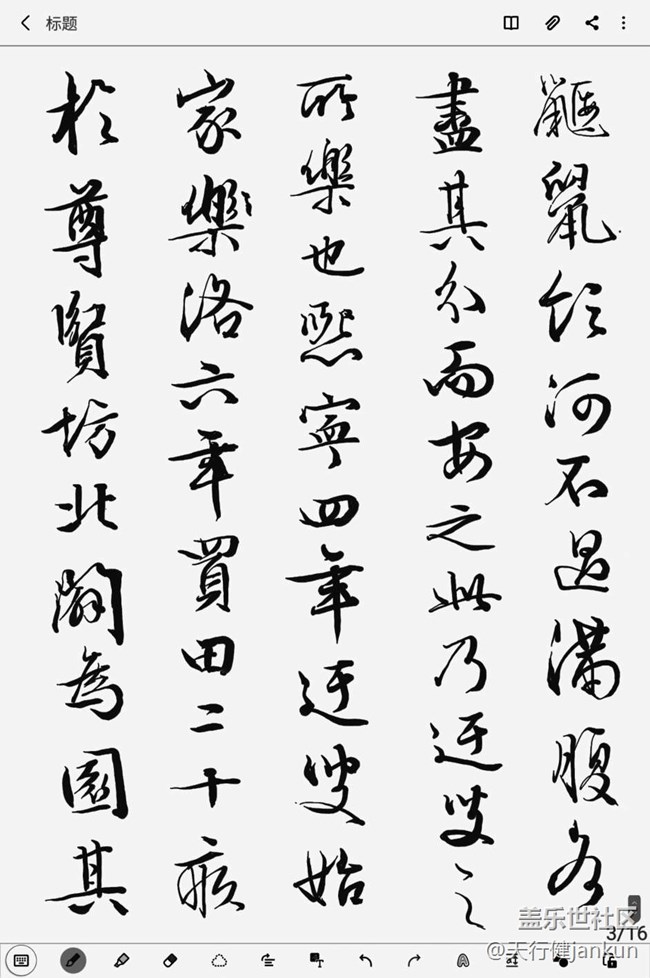 标题
鼴鼠飲河不過滿腹各
盡其分而安之此乃迂叟之
所樂也熙寧四年迂叟始
家樂洛六年買田二十畝
於尊賢坊北闢為園其
盖乐世社区
3/16
@天行健jankun